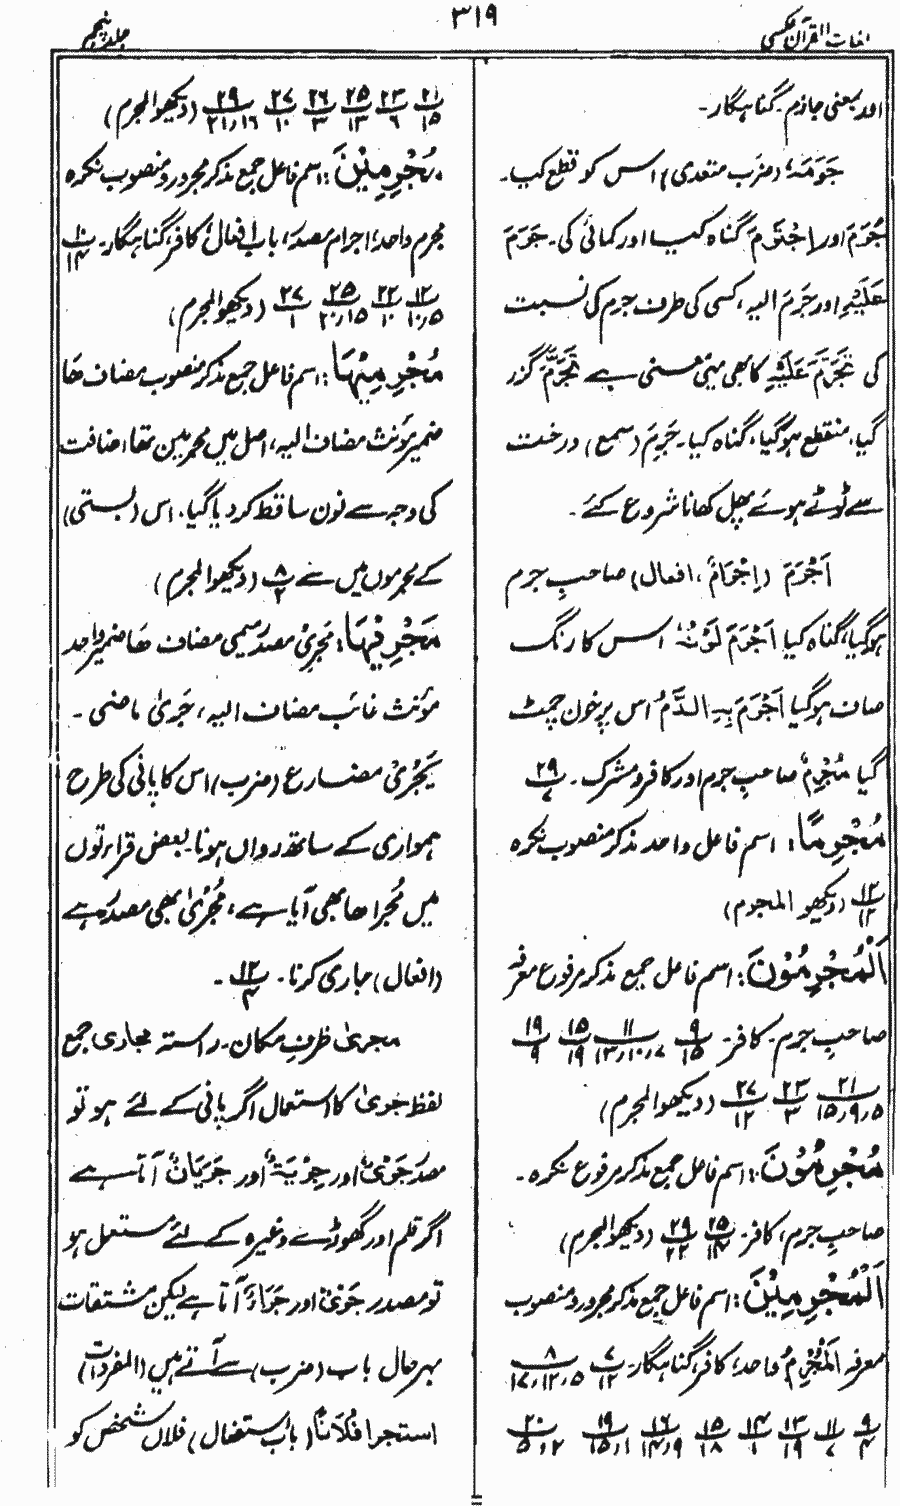 لغات القرآن عکسی
۳۱۹
جلد پنجم
اور یعنی جازم۔ گناہگار۔
جَرَمَہٗ (ضرَب متعدی) اس کو قطع کیا۔
جُرَمَ اور اِجْتَرَمَ گناہ کیا اور کمائی کی۔ جَرَمَ
عَلَیْہِ اور جَرَمَ الیہ، کسی کی طرف جرم کی نسبت
کی تَجَرَّمَ عَلَیْہِ کا بھی یہی معنی ہے تَجَرَّمَ گزر
گیا، منقطع ہوگیا، گناہ کیا۔ جَرِمَ (سمع) درخت
سے ٹوٹے ہوئے پھل کھانا شروع کئے۔
اَجْرَمَ (اِجْرَامٌ، افعال) صاحبِ جرم
ہوگیا، گناہ کیا اَجْرَمَ لَوْنُہٗ اس کا رنگ
صاف ہوگیا اَجْرَمَ بِہِ الدَّمُ اس پر خون چمٹ
گیا مُجْرِمٌ صاحبِ جرم اور کافر و مشرک۔ ۲۹/۷
مُجْرِمًا: اسم فاعل واحد مذکر منصوب نکرہ
۱۶/۱۲ (دیکھو المجرم)
اَلْمُجْرِمُوْنَ: اسم فاعل جمع مذکر مرفوع معرفہ
صاحبِ جرم۔ کافر۔ ۹/۱۵ ۱۱/۷،۱۰،۱۳ ۱۵/۱۹ ۱۹/۹
۲۱/۵،۹،۱۵ ۲۳/۳ ۲۷/۱۲ (دیکھو المجرم)
مُجْرِمُوْنَ: اسم فاعل جمع مذکر مرفوع نکرہ۔
صاحبِ جرم، کافر۔ ۲۵/۱۴ ۲۹/۲۲ (دیکھو المجرم)
اَلْمُجْرِمِیْنَ: اسم فاعل جمع مذکر مجرور و منصوب
معرفہ اَلْمُجْرِمُ واحد، کافر، گناہگار۔ ۷/۱۲ ۸/۵،۱۲،۱۷
۹/۴ ۱۱/۷ ۱۳/۱۹ ۱۴/۱ ۱۵/۱۸ ۱۶/۹،۱۴ ۱۹/۱،۱۵ ۲۰/۲،۵
۲۱/۱۵ ۲۳/۶ ۲۵/۱۳ ۲۶/۳ ۲۷/۱۰ ۲۹/۱۶،۲۱ (دیکھو المجرم)
مُجْرِمِیْنَ: اسم فاعل جمع مذکر مجرور و منصوب نکرہ
مجرم واحد، اجرام مصدر، باب افعال، کافر، گناہگار۔ ۱۰/۱۴
۱۲/۵،۱۰ ۲۲/۱۰ ۲۵/۱۵،۲۰ ۲۷/۱ (دیکھو المجرم)
مُجْرِمِیْہَا: اسم فاعل جمع مذکر منصوب مضاف ھَا
ضمیر مؤنث مضاف الیہ، اصل میں مجرمین تھا، اضافت
کی وجہ سے نون ساقط کر دیا گیا۔ اس (بستی)
کے مجرموں میں سے ۸/۲ (دیکھو المجرم)
مَجْرٖىہَا: مَجْرٰی مصدر میمی مضاف ھَا ضمیر واحد
مؤنث غائب مضاف الیہ، جَرٰی ماضی۔
یَجْرِیْ مضارع (ضرب) اس کا پانی کی طرح
ہمواری کے ساتھ رواں ہونا۔ بعض قراءتوں
میں مُجْرَاھَا بھی آیا ہے، مُجْرٰی بھی مصدر ہے
(افعال) جاری کرنا۔ ۱۲/۴۔
مجریٰ ظرفِ مکان۔ راستہ مجاری جمع
لفظ جریٰ کا استعمال اگر پانی کے لئے ہو تو
مصدر جَرْیٌ اور جِرْیَۃٌ اور جَرَیَانٌ آتا ہے
اگر قلم اور گھوڑے وغیرہ کے لئے مستعمل ہو
تو مصدر جَرْیٌ اور جِرَاءٌ آتا ہے لیکن مشتقات
بہرحال باب (ضرب) سے آتے ہیں (المفردات)
استجرا فُلَانًا (باب استفعال) فلاں شخص کو